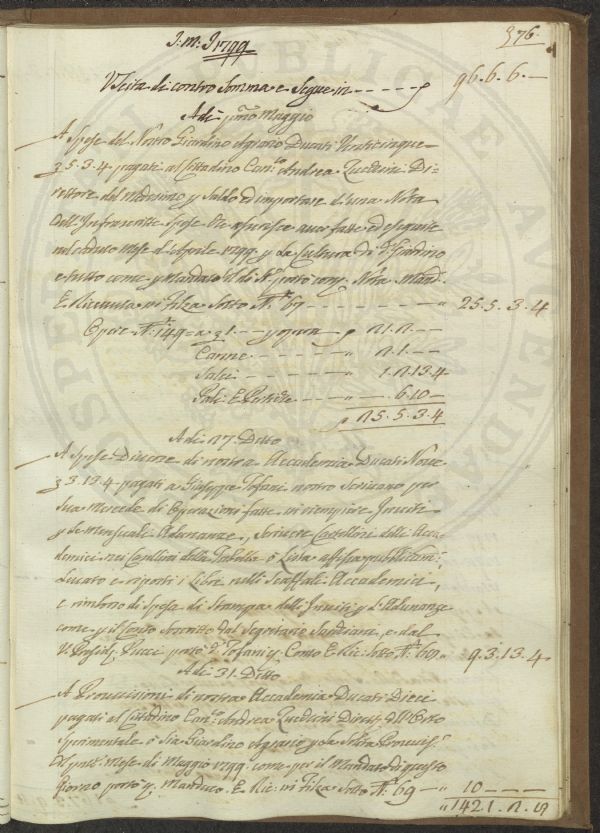 376.
J: M: J 1799
Uscita di contro Somma e Segue in - - - - - 96. 6. 6. —
A dì pmo Maggio
A Spese del Nostro Giardino Agrario Ducati Venticinque
5.3.4 pagati al Cittadino Can.co Andrea Zucchini Di=
rettore del Medesimo p Saldo ed importare d'una Nota
dell'Infrascritte Spese che apparisce aver fatte ed eseguite
nel caduto Mese d'Aprile 1799 p la Cultura di d.o Giardino
e tutto come p Mandato di N. Nota Mand.
E Ricevuta in Filza Sotto N.o 67 - - - - - " 25. 5. 3. 4
Opere N.o 149
Canne - - - - - "
Salci - - - - - " 13. 4
Pali E Pertiche - - - - - 6. 10 —
5. 5. 3. 4
A dì 17 Ditto
A Spese Diverse di nostra Accademia Ducati Nove
3. 13. 4 pagati a Giuseppe Tofani nostro Scrivano per
Sua Mercede di Operazioni fatte in riempire Inviti
p le Mensuali Adunanze, Scrivere Cartelloni delli Acca-
demici nei della Tabella ò Lista affissa
Levato e riposti i Libri nelli Scaffali Accademia,
e rimborso di Spesa di Stampa delli Inviti p d.e Adunanze
come p il Conto Soscritto dal Segretario e dal
V. Presid.te Pucci porto d.o Tofani p. Conto E Ric: Sotto N.o 68 " 9. 3. 13. 4
A dì 31. Ditto
A Provvisioni di nostra Accademia Ducati Dieci
pagati al Cittadino Can.co Andrea Zucchini Dirett. dell'Orto
Sperimentale ò Sia Giardino Agrario p la Solita Provvis.e
del pass.o Mese di Maggio 1799 come per il Mandato di questo
Giorno porto p. Mandato E Ric: in Filza Sotto N.o 69 — " 10 - - - -
" 1421.